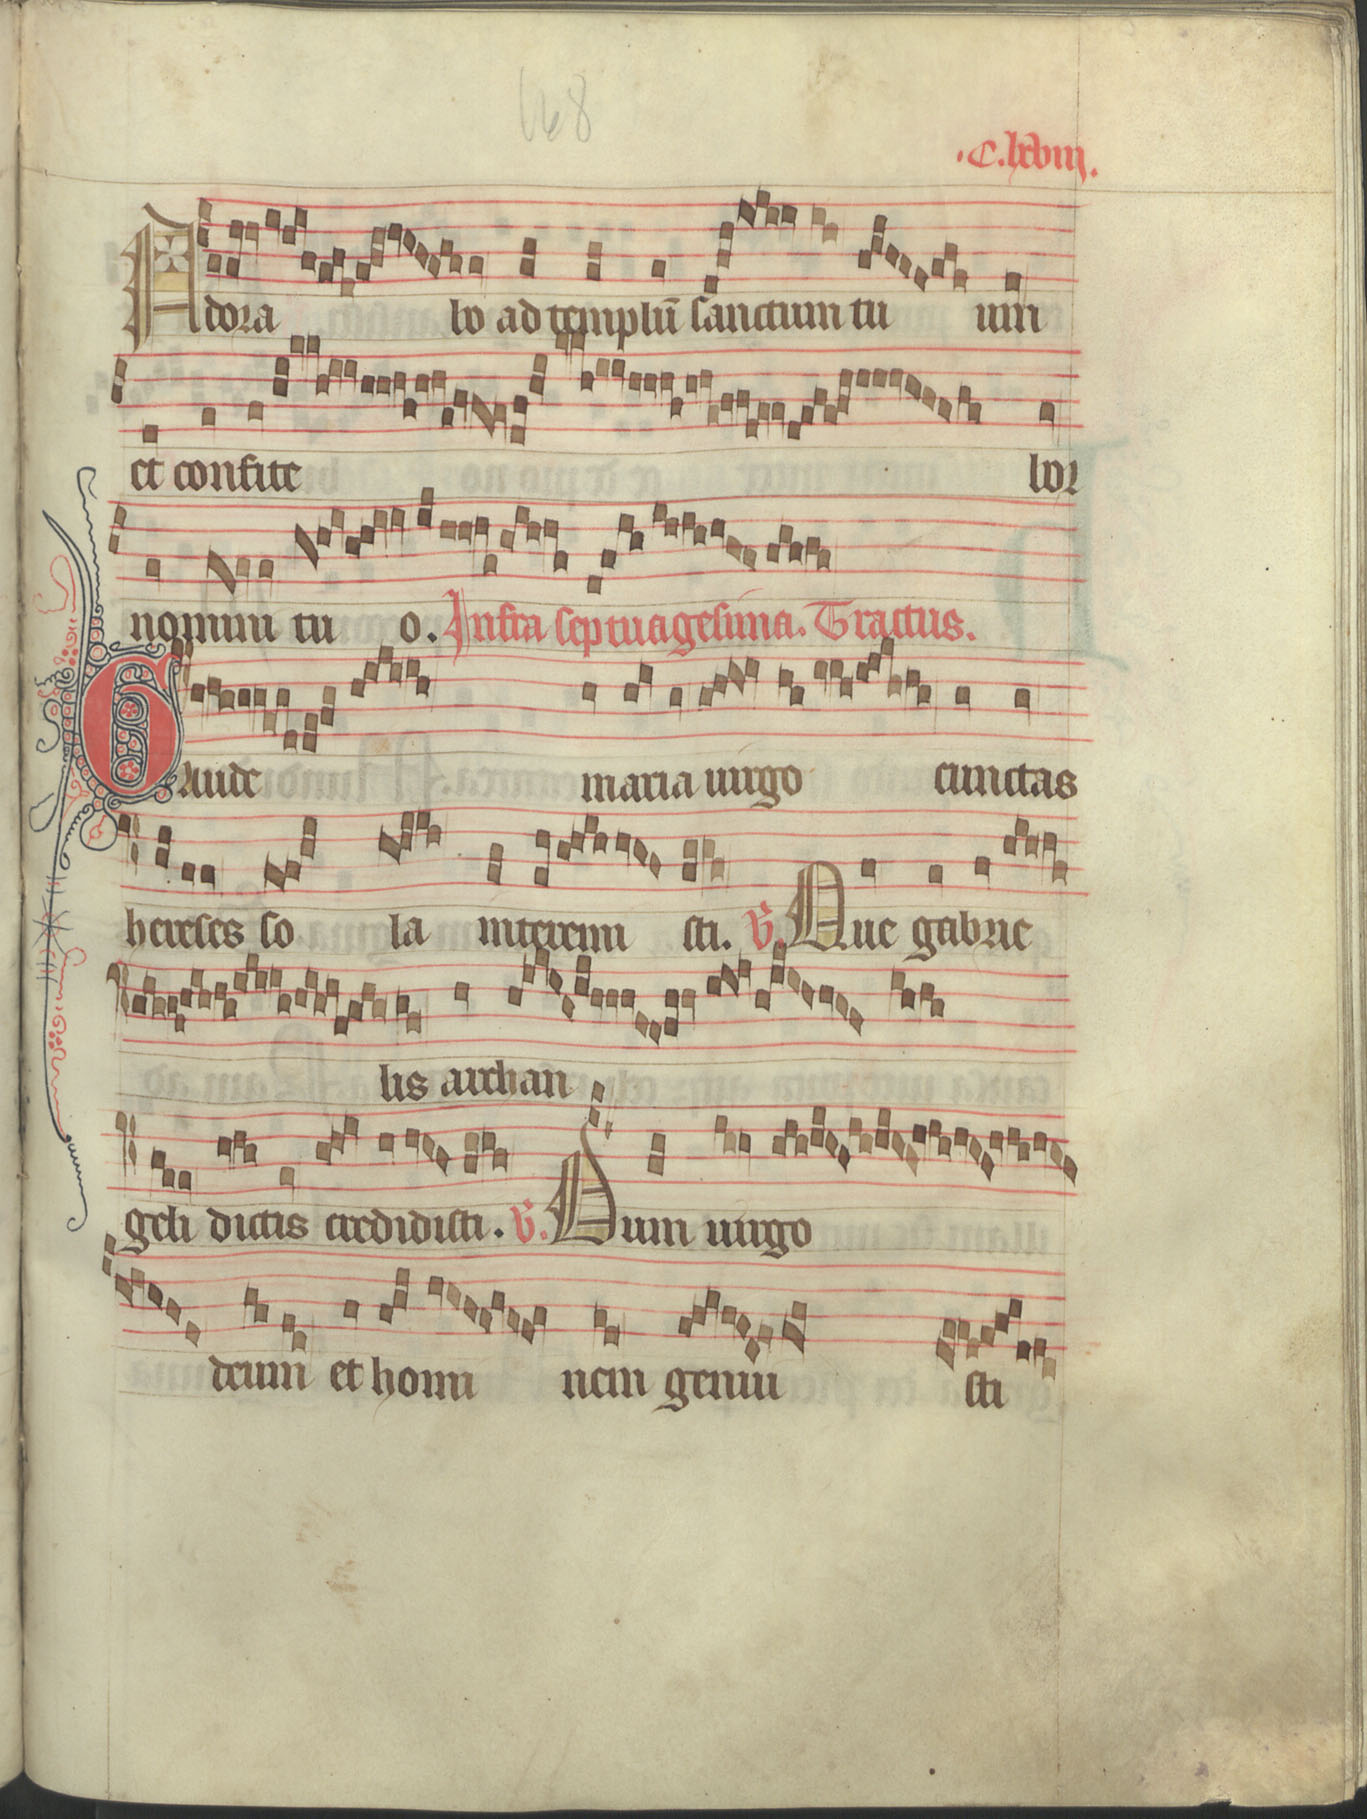 168
.C.lxviii.
Adora bo ad templū sanctum tu um
et confite bor
nomini tu o. Infra septuagesima. Tractus.
Gaude maria uirgo cunctas
hereses so la interemi sti. V. Que gabrie
lis archan
geli dictis credidisti. V. Dum uirgo
deum et homi nem genui sti